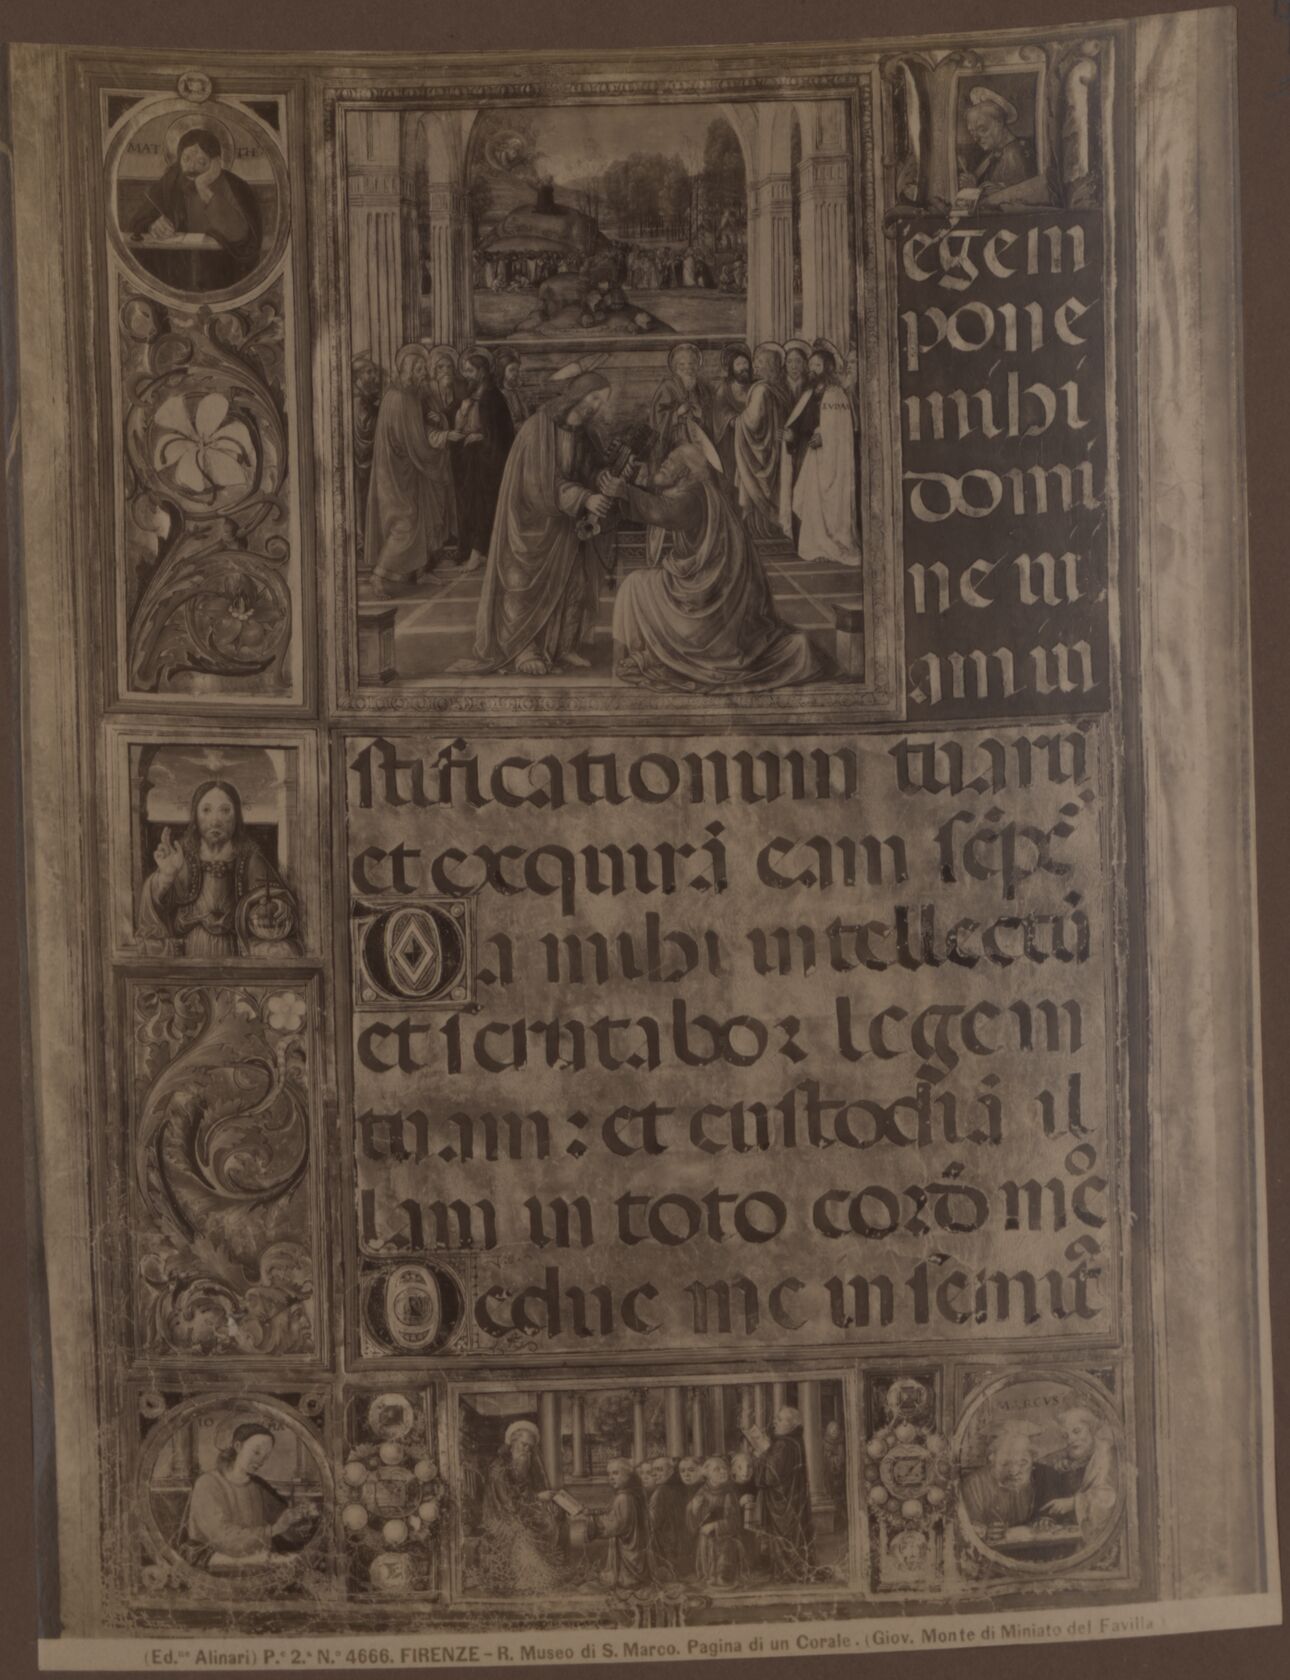 MAT TH
Legem
pone
mihi
domi
ne ui
am iu
IVDAS
stificationum tuarū
et exquirā eam sēp
Da mihi intellectū
et scrutabor legem
tuam : et custodiā il
lam in toto cord̄ mō
Deduc me in semitā
IO AN
MARCVS
(Ed.ne Alinari) P.e 2.a N.o 4666. FIRENZE – R. Museo di S. Marco. Pagina di un Corale. (Giov. Monte di Miniato del Favilla)